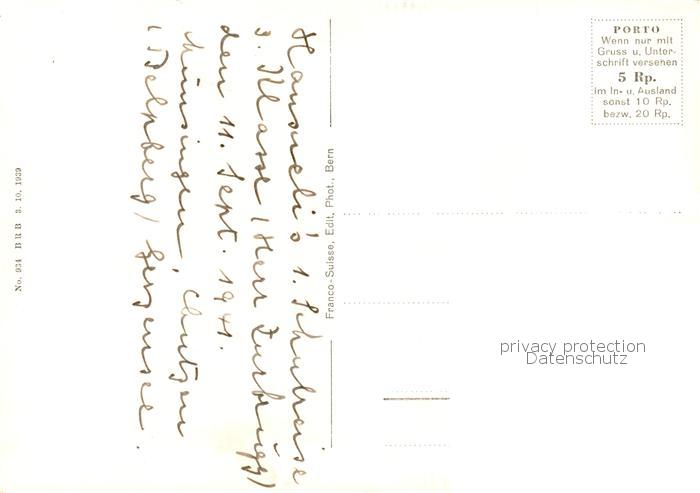 Hansueli's 1. Schulreise
3. Klasse (Herr Zurbrügg)
den 11. Sept. 1941.
Münsingen, Chutzen
(Belpberg) Gerzensee.
Franco-Suisse, Edit, Phot., Bern
No. 934 BRB 3. 10. 1939
PORTO
Wenn nur mit
Gruss u. Unter-
schrift versehen
5 Rp.
im In- u. Ausland
sonst 10 Rp.
bezw. 20 Rp.
privacy protection
Datenschutz